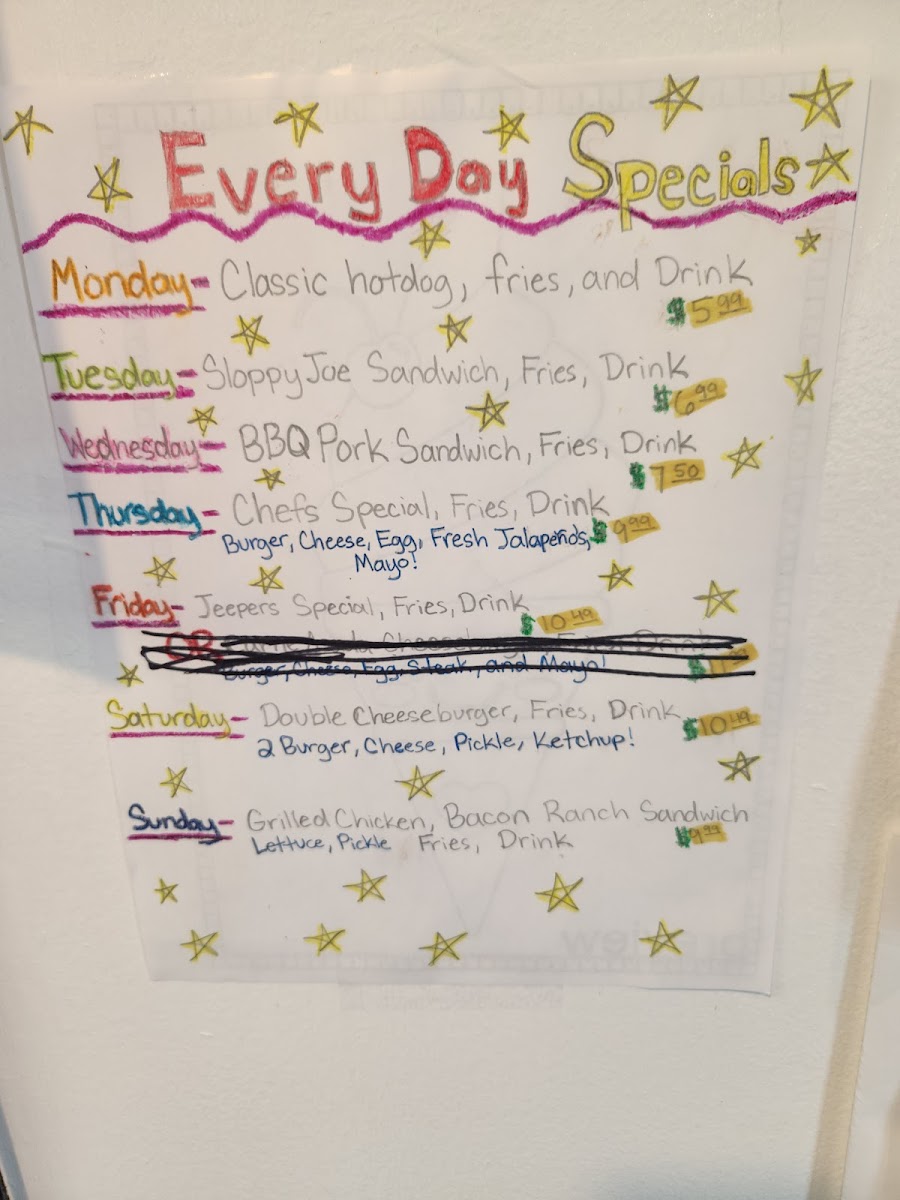 Every Day Specials
Monday- Classic hotdog, fries, and Drink
$5.99
Tuesday- Sloppy Joe Sandwich, Fries, Drink
$6.99
Wednesday- BBQ Pork Sandwich, Fries, Drink
$7.50
Thursday- Chefs Special, Fries, Drink
Burger, Cheese, Egg, Fresh Jalapeños, $9.99
Mayo!
Friday- Jeepers Special, Fries, Drink
$10.49
OR
Burger, Cheese, Egg, Steak, and Mayo!
Saturday- Double Cheeseburger, Fries, Drink
$10.49
2 Burger, Cheese, Pickle, Ketchup!
Sunday- Grilled Chicken, Bacon Ranch Sandwich
Lettuce, Pickle Fries, Drink $9.99